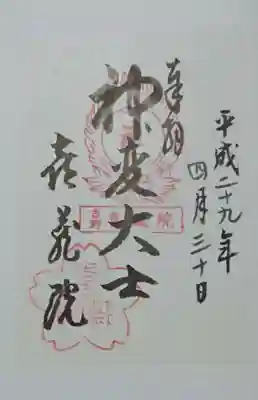 奉拝
平成二十九年
四月三十日
神変大士
喜蔵院